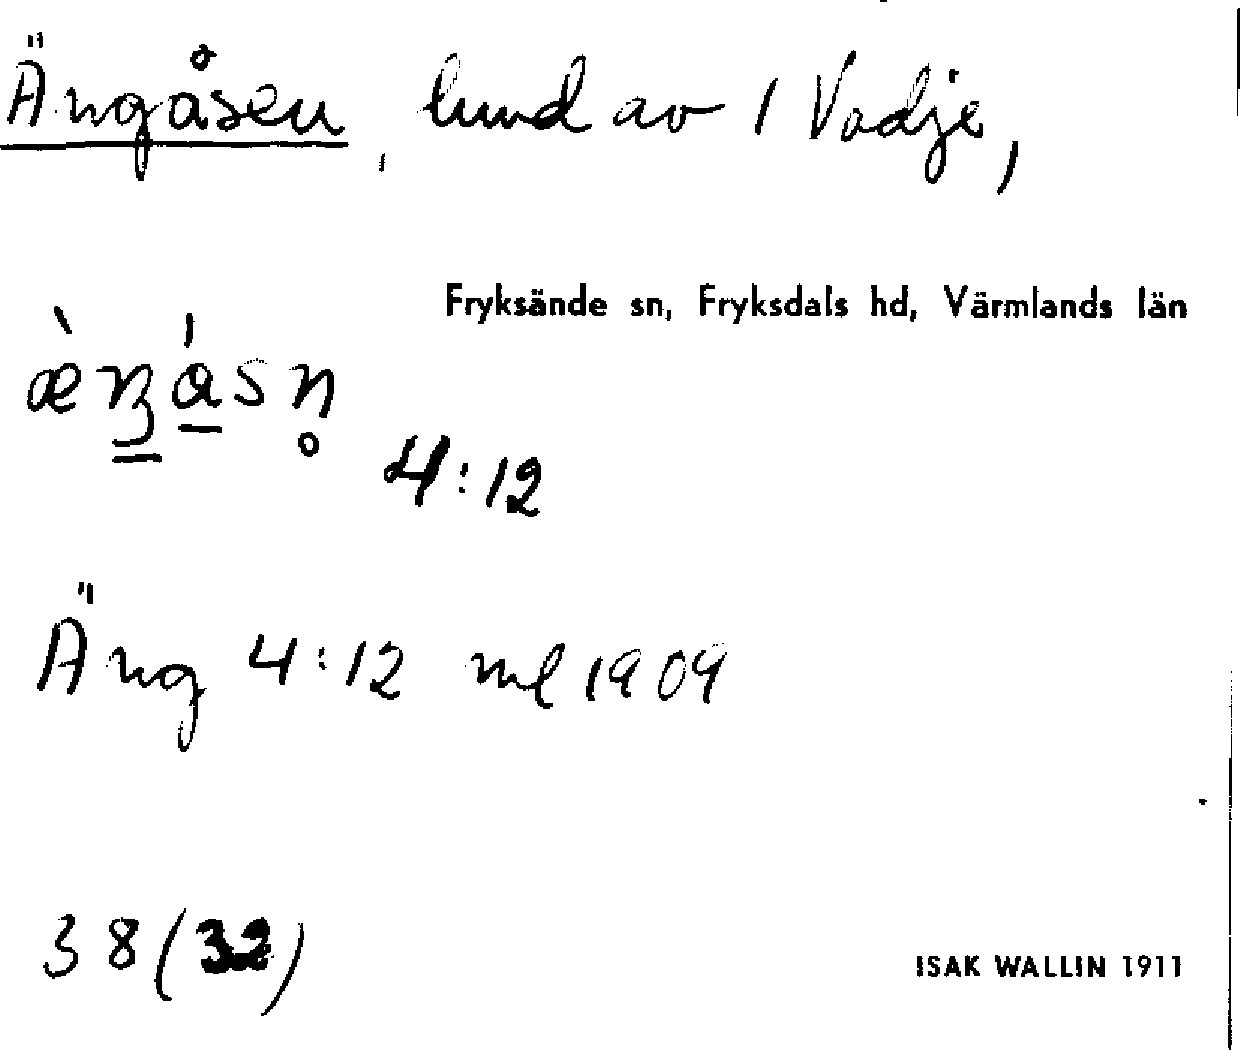 Ängåsen, lund av 1 Vadje,
Fryksände sn, Fryksdals hd, Värmlands län
æ̀ŋåsn̥
4:12
Äng 4:12 ml 1909
38 (32)
ISAK WALLIN 1911